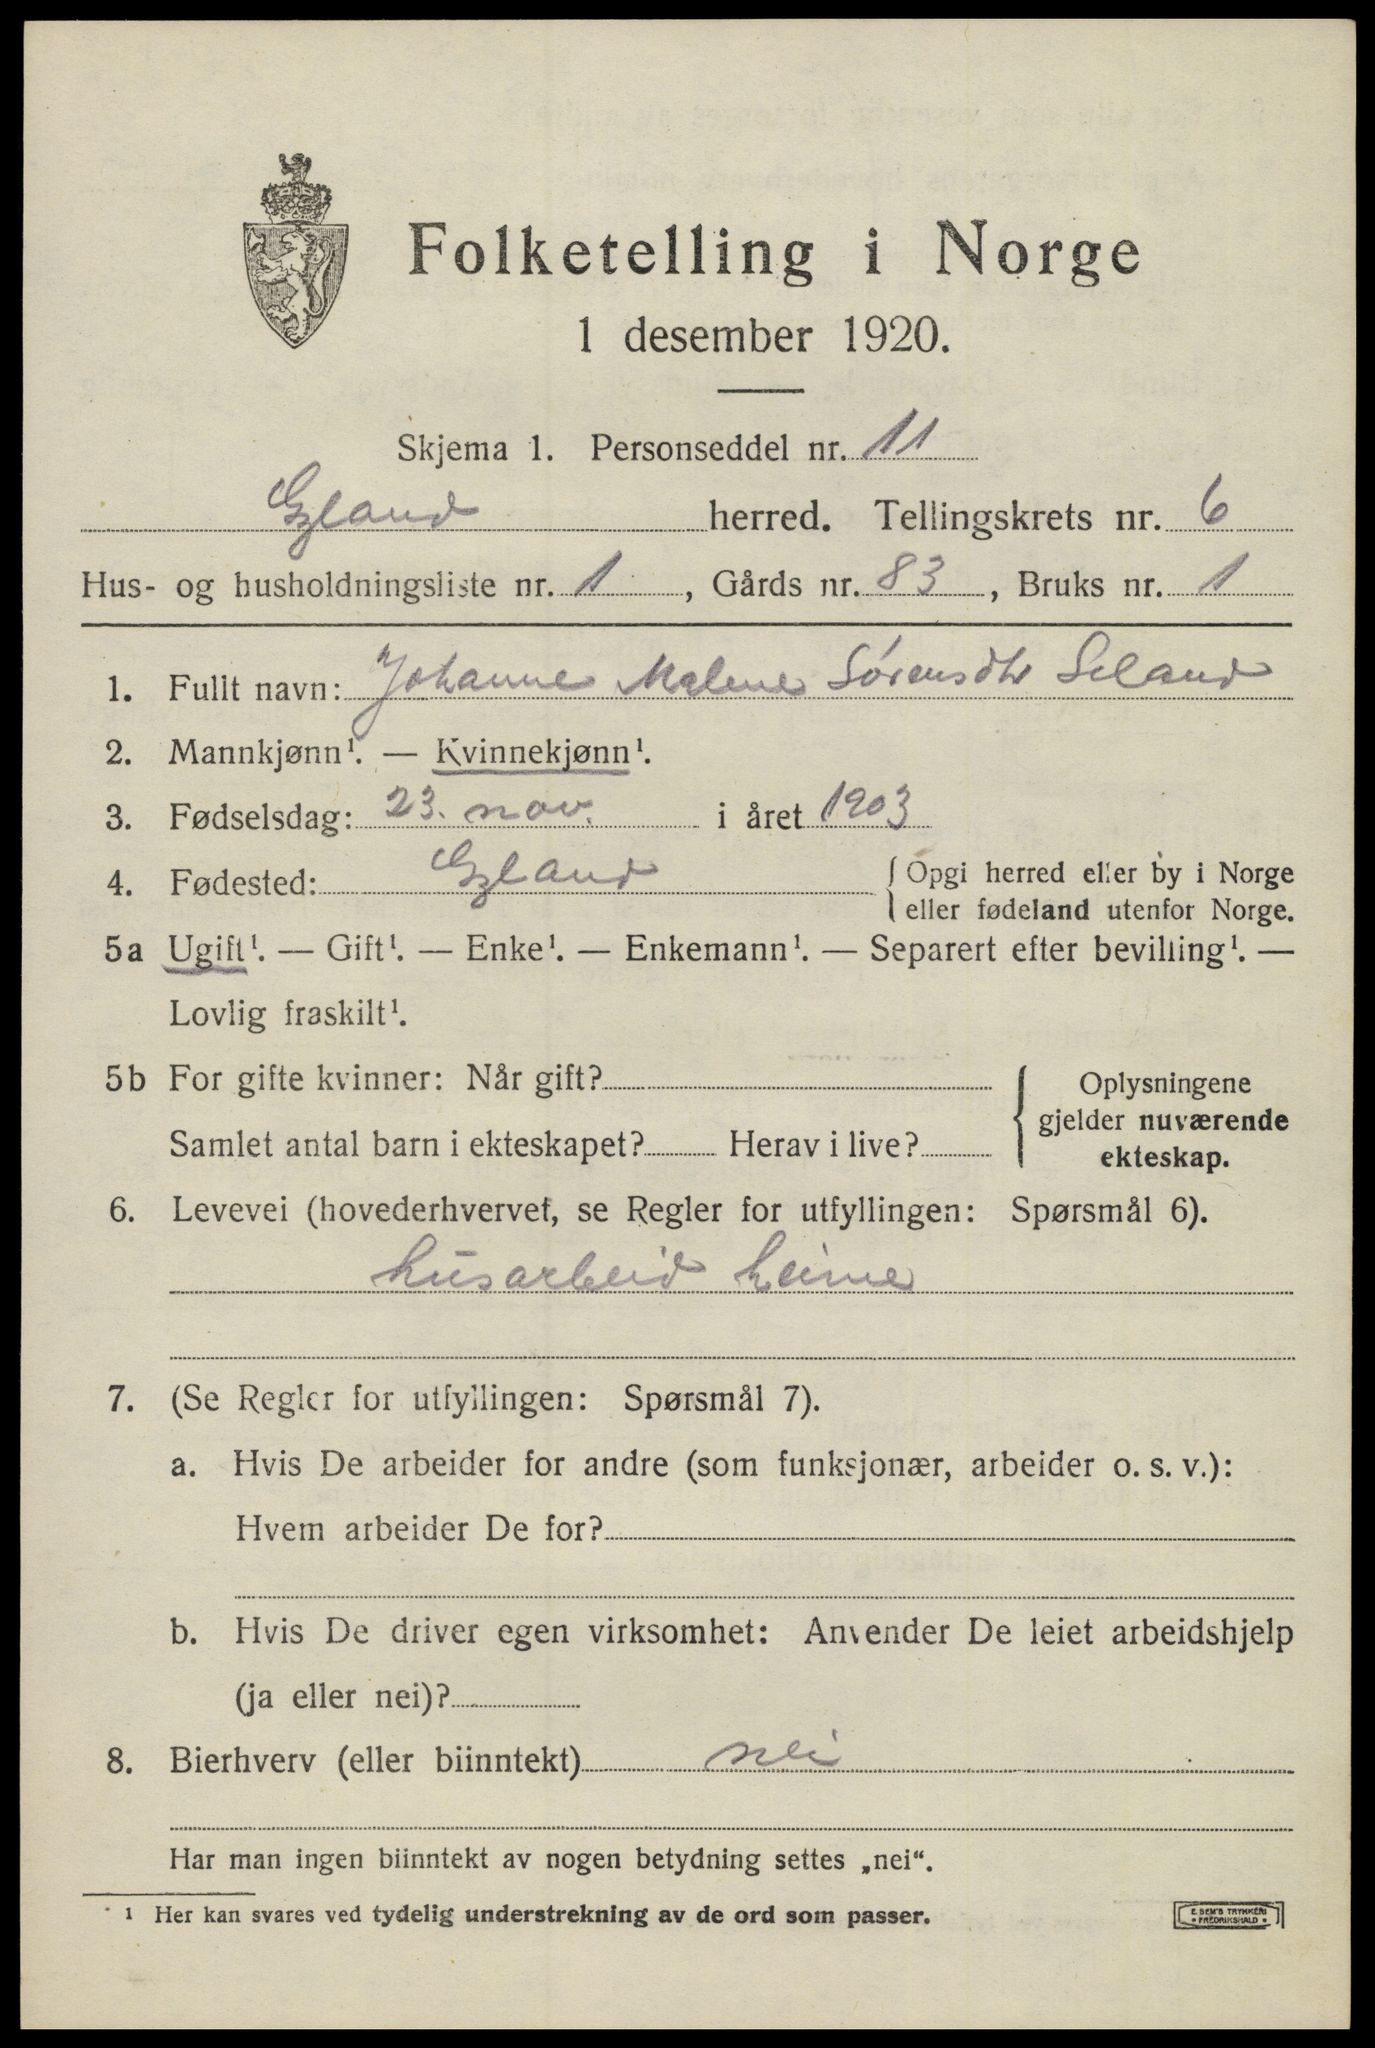 Folketelling i Norge
1 desember 1920.
Skjema 1. Personseddel nr. 11
Gyland herred. Tellingskrets nr. 6
Hus- og husholdningsliste nr. 1, Gårds nr. 83, Bruks nr. 1
1. Fullt navn: Johanne Malene Sørensdtr Seland
2. Mannkjønn¹. — Kvinnekjønn¹.
3. Fødselsdag: 23. nov. i året 1903
4. Fødested: Gyland { Opgi herred eller by i Norge
eller fødeland utenfor Norge.
5a Ugift¹. — Gift¹. — Enke¹. — Enkemann¹. — Separert efter bevilling¹. —
Lovlig fraskilt¹.
5b For gifte kvinner: Når gift?
Samlet antal barn i ekteskapet? Herav i live?
{ Oplysningene
gjelder nuværende
ekteskap.
6. Levevei (hovederhvervet, se Regler for utfyllingen: Spørsmål 6).
husarbeid heime
7. (Se Regler for utfyllingen: Spørsmål 7).
a. Hvis De arbeider for andre (som funksjonær, arbeider o. s. v.):
Hvem arbeider De for?
b. Hvis De driver egen virksomhet: Anvender De leiet arbeidshjelp
(ja eller nei)?
8. Bierhverv (eller biinntekt) nei
Har man ingen biinntekt av nogen betydning settes „nei“.
¹ Her kan svares ved tydelig understrekning av de ord som passer.
E. SEM'S TRYKKERI
• FREDRIKSHALD •